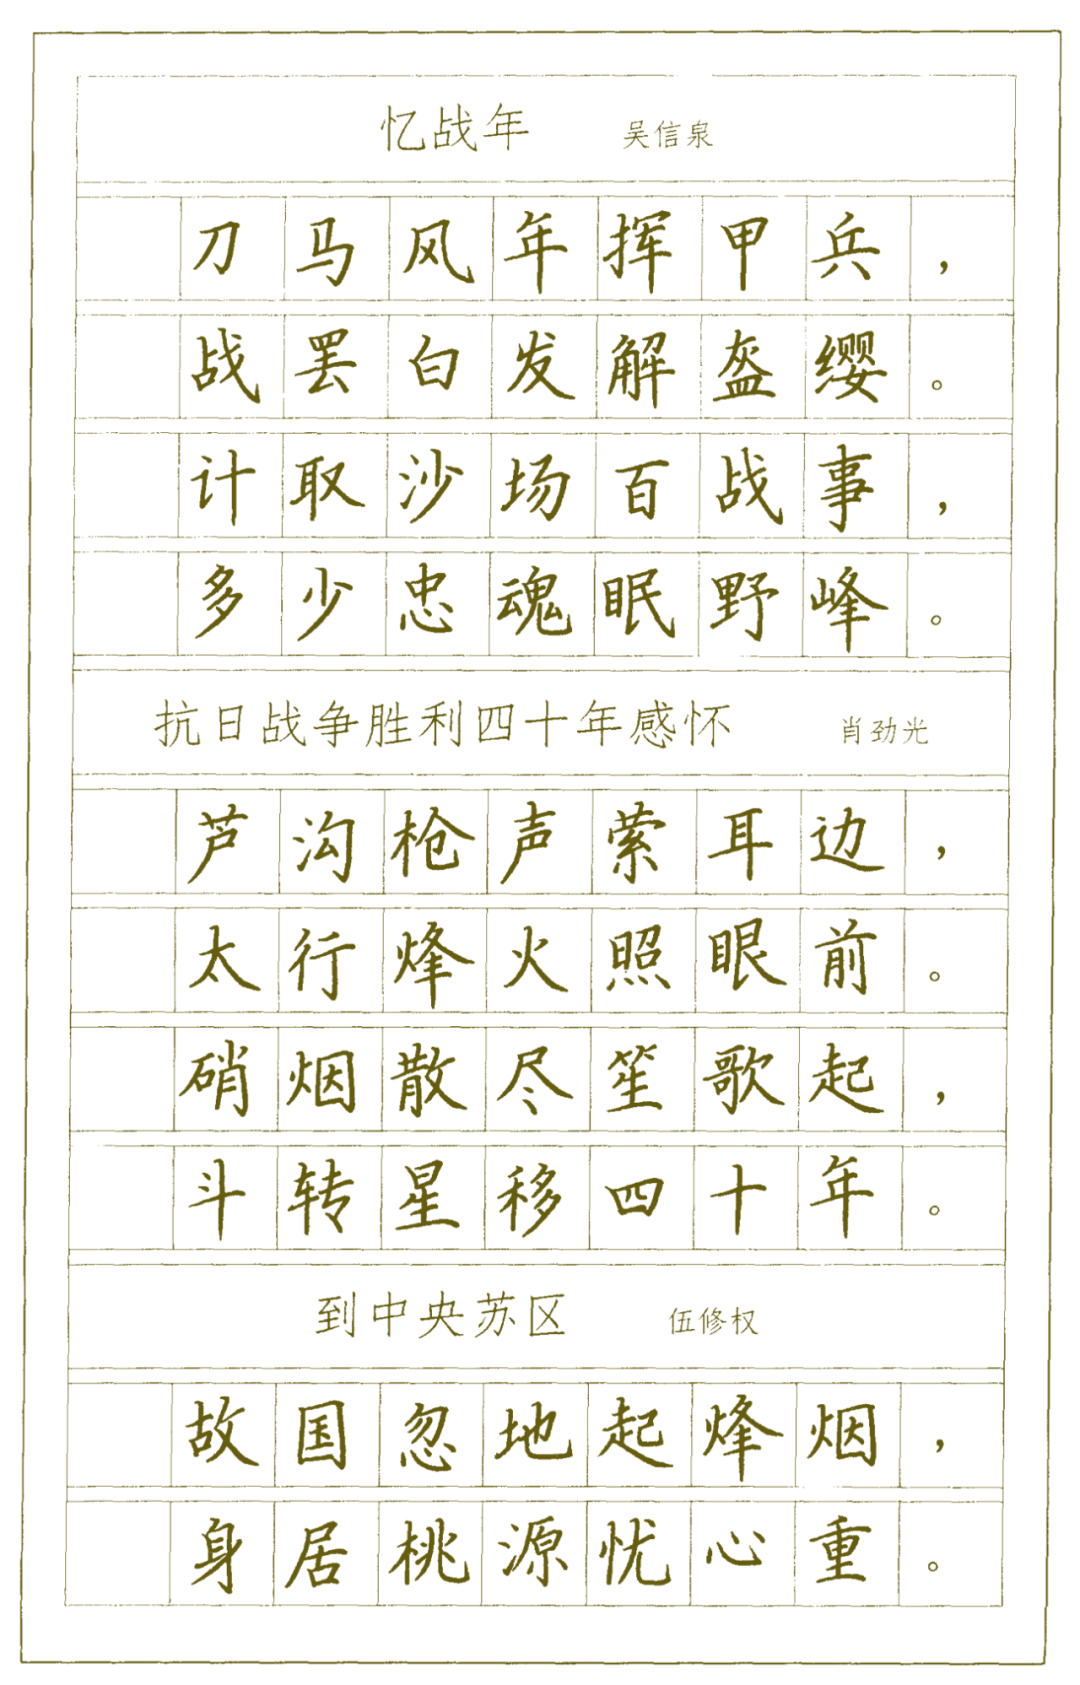 忆战年 吴信泉
刀马风年挥甲兵，
战罢白发解盔缨。
计取沙场百战事，
多少忠魂眠野峰。
抗日战争胜利四十年感怀 肖劲光
芦沟枪声萦耳边，
太行烽火照眼前。
硝烟散尽笙歌起，
斗转星移四十年。
到中央苏区 伍修权
故国忽地起烽烟，
身居桃源忧心重。